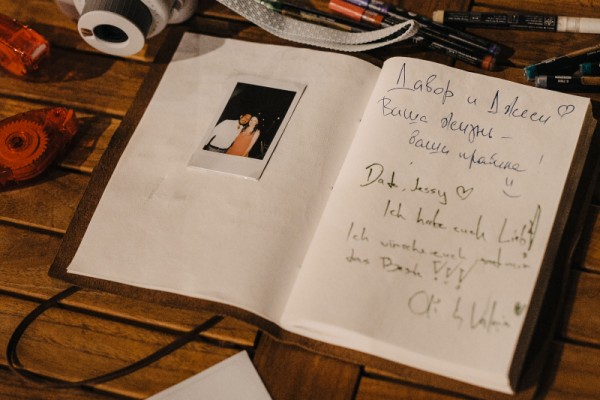 Давор и Джеси ♡
Ваша жизнь –
ваши правила !
Ich habe euch Lieb!
Ich wünsche euch
das Beste !!!